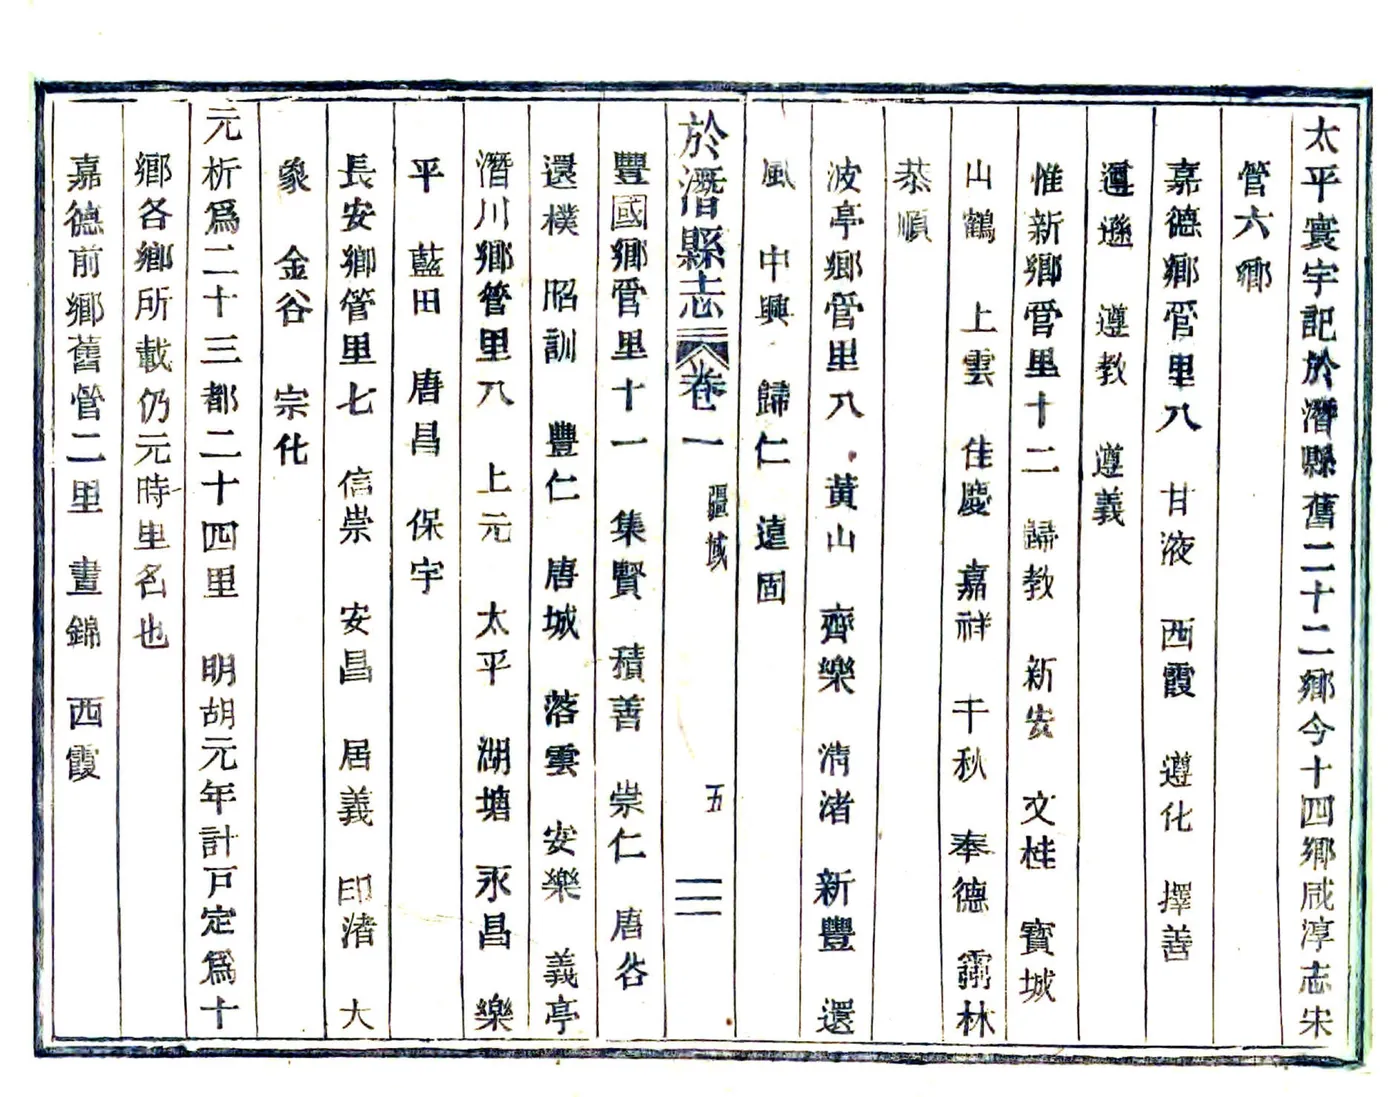 太平寰宇記於潛縣舊二十二鄉今十四鄉咸淳志宋
管六鄉
嘉德鄉管里八 甘液 西霞 遵化 擇善
遵遜 遵教 遵義
惟新鄉管里十二 歸教 新安 文桂 寶城
山鶴 上雲 佳慶 嘉祥 千秋 奉德 霸林
恭順
波亭鄉管里八 黃山 齊樂 清渚 新豐 還
風 中興 歸仁 遠固
於潛縣志 卷一 疆域 五
豐國鄉管里十一 集賢 積善 崇仁 唐谷
還樸 昭訓 豐仁 唐城 落雲 安樂 義亭
潛川鄉管里八 上元 太平 湖塘 永昌 樂
平 藍田 唐昌 保宇
長安鄉管里七 信崇 安昌 居義 印渚 大
象 金谷 宗化
元析爲二十三都二十四里 明胡元年計戸定爲十
鄉各鄉所載仍元時里名也
嘉德前鄉舊管二里 晝錦 西霞